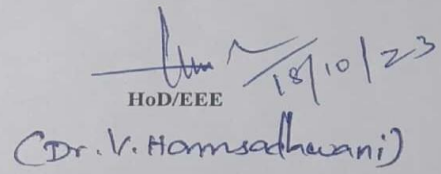 18/10/23
HoD/EEE
(Dr. V. Hamsadhwani)